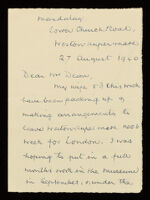 Mandalay
Lower Church Road,
Weston-super-mare
27 August 1940
Dear Mr Dean,
My wife & I this week
have been packing up &
making arrangements to
leave Weston-super-mare next
week for London. I was
hoping to put in a full
months work in the museum
in September, under the